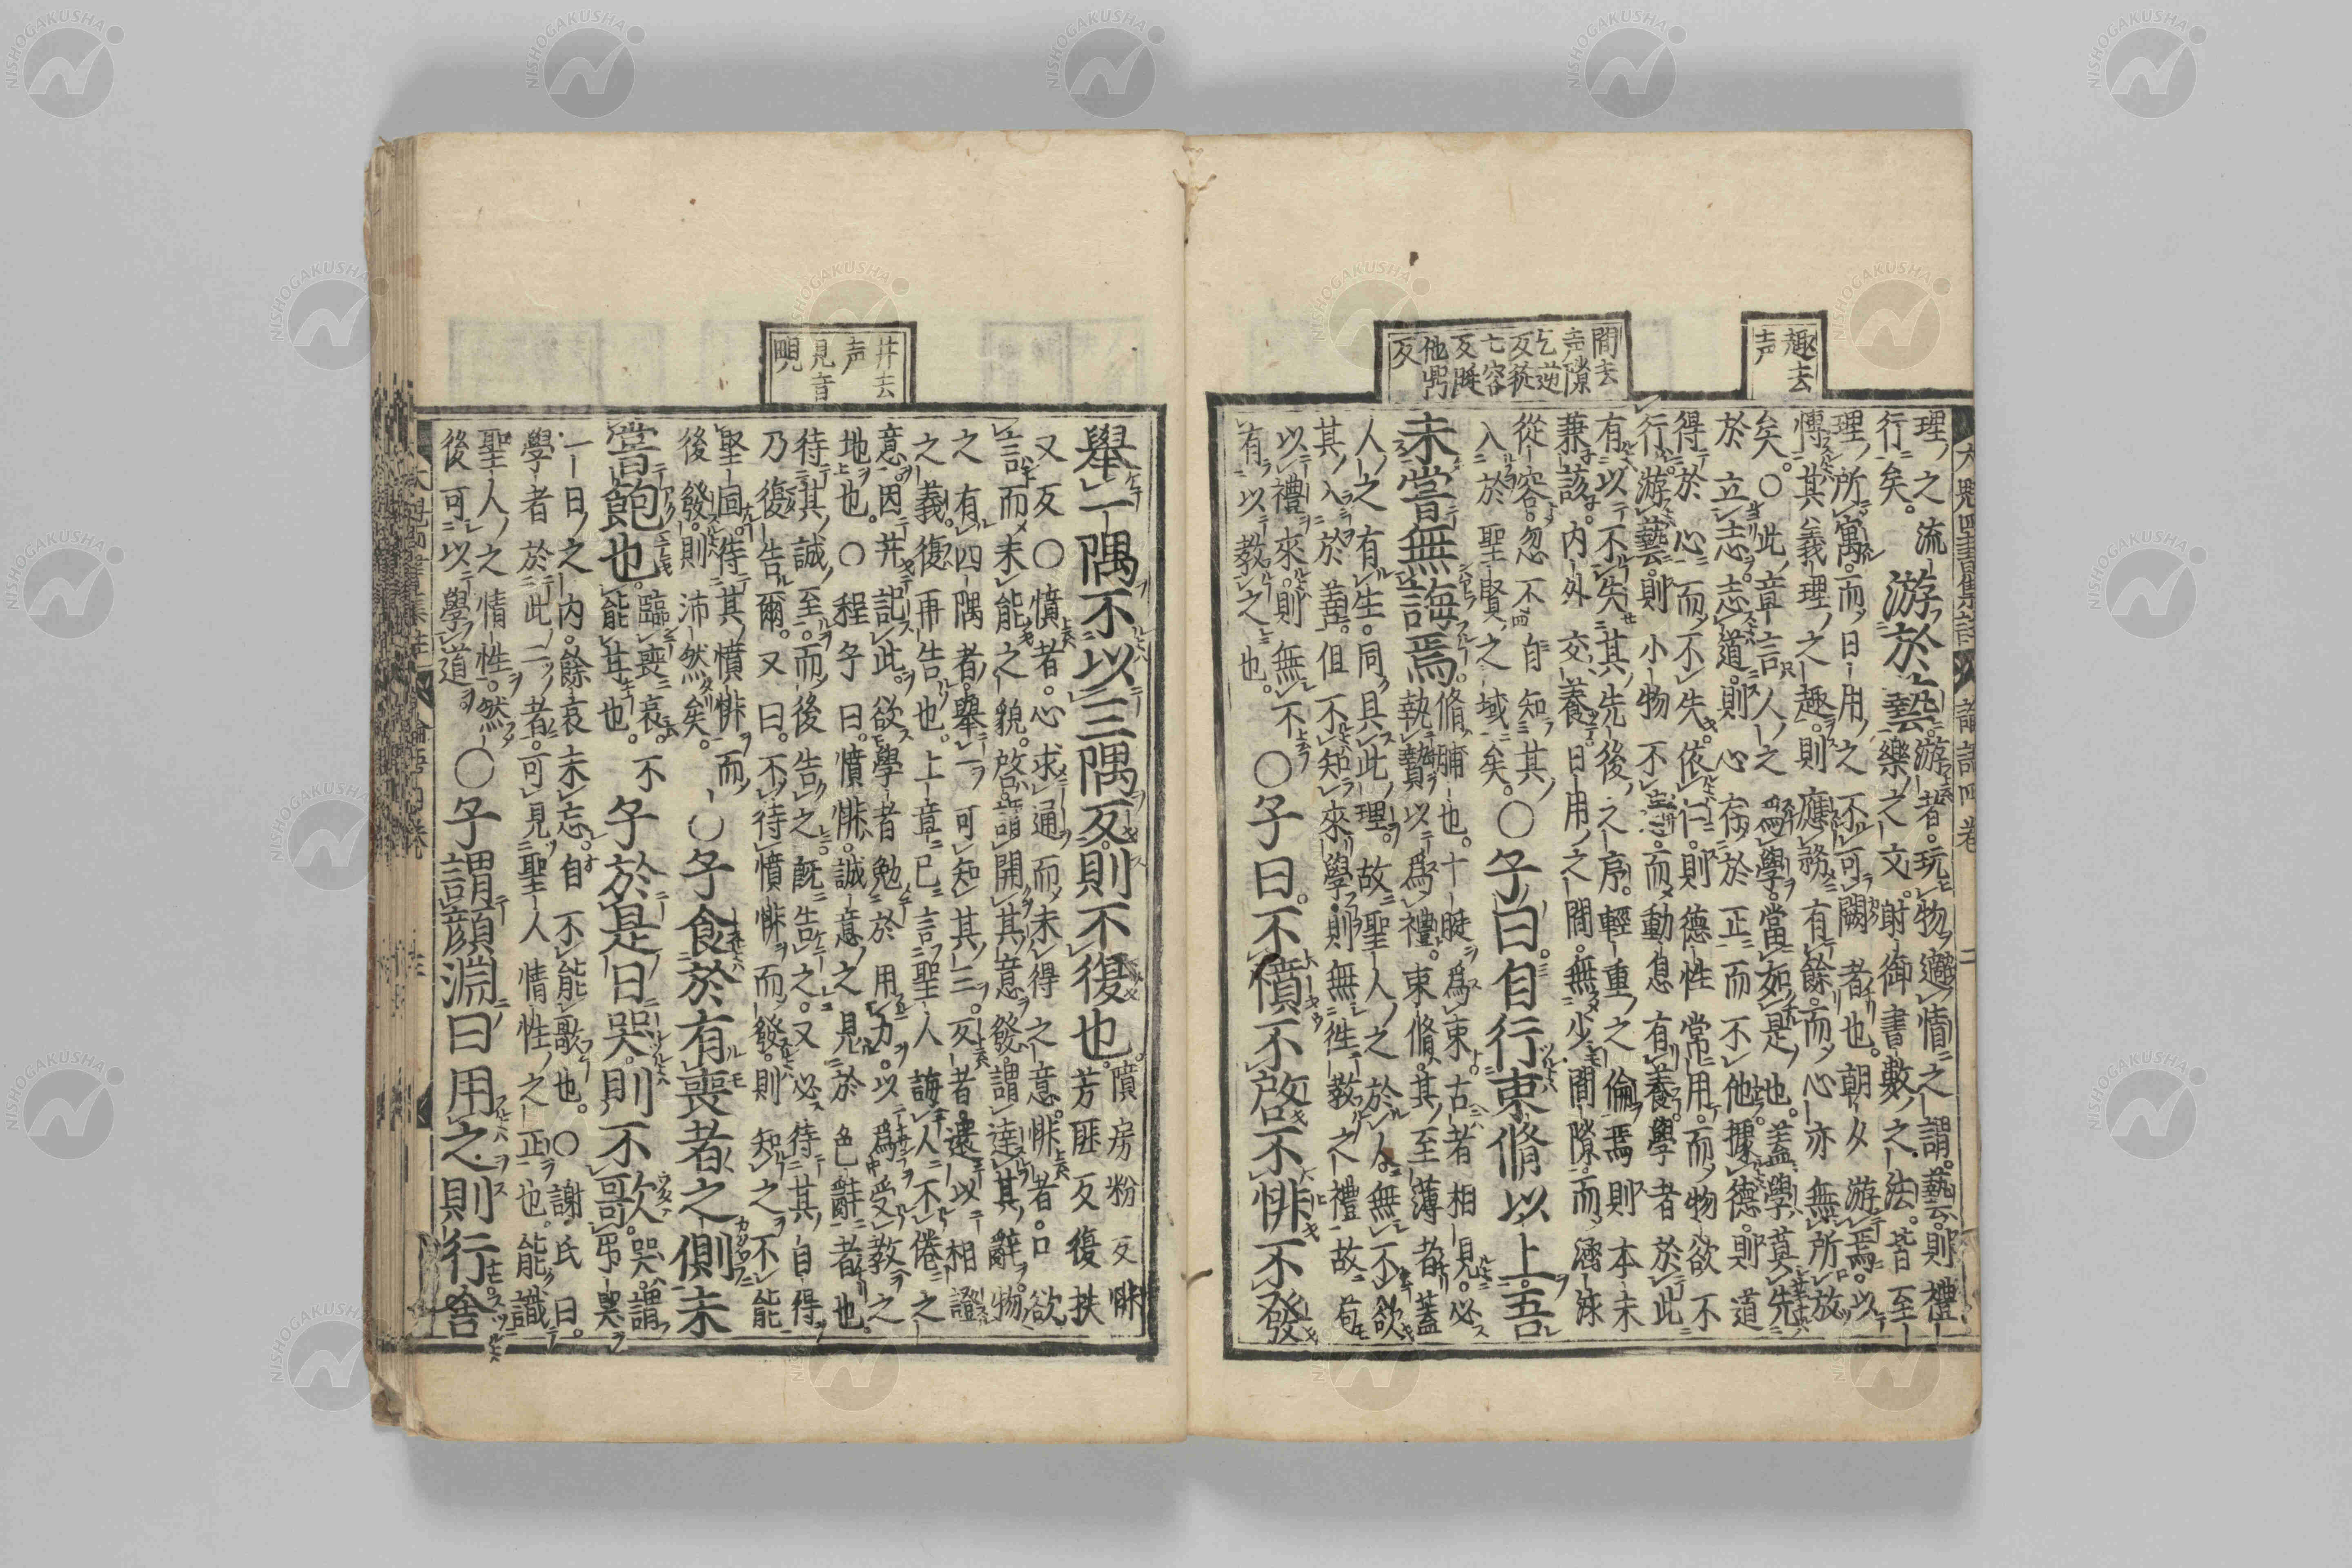 趣去
声
間去
声隙
乞逆
反從
七容
反脡
他鼎
反
大魁四書集註 論語四卷 二
理之流
行矣。
游於藝
游者。玩物適情之謂。藝。則禮
樂之文。射御書數之法。皆至
理所寓。而日用之不可闕者也。朝夕游焉。以
博其義理之趣。則應務有餘。而心亦無所放
矣。○此章言人之爲學。當如是也。蓋學莫先
於立志。志道。則心存於正而不他。據德。則道
得於心。而不失。依仁。則德性常用。而物欲不
行。游藝。則小物不遺。而動息有養。學者於此
有以不失其先後之序。輕重之倫焉。則本末
兼該。内外交養。日用之間。無少間隙。而涵泳
從容。忽不自知其
入於聖賢之域矣。
○子曰。自行束脩以上。吾
未嘗無誨焉
脩脯也。十脡爲束。古者相見。必
執贄以爲禮。束脩。其至薄者。蓋
人之有生。同具此理。故聖人之於人。無不欲
其入於善。但不知來學。則無往教之禮。故苟
以禮來。則無不
有以教之也。
○子曰。不憤不啓不悱不發
井去
声
見音
現
舉一隅不以三隅反則不復也。
憤房粉反悱
芳匪反復扶
又反○憤者。心求通而未得之意。悱者。口欲
言而未能之貌。啓。謂開其意。發。謂達其辭。物
之有四隅者。舉一可知其三。反者。還以相證
之義。復。再告也。上章已言聖人誨人不倦之
意。因井記此。欲學者勉於用力。以爲受教之
地也。○程子曰。憤悱。誠意之見於色辭者也。
待其誠至。而後告之。既告之。又必待其自得
乃復告爾。又曰。不待憤悱而發。則知之不能
堅固。待其憤悱而
後發。則沛然矣。
○子食於有喪者之側未
嘗飽也。
臨喪哀。不
能甘也。
子於是日哭。則不歌。
哭。謂
弔哭
一日之内。餘哀未忘。自不能歌也。○謝氏曰。
學者於此二者。可見聖人情性之正也。能識
聖人之情性。然
後可以學道。
○子謂顏淵曰用之則行舍
NISHOGAKUSHA